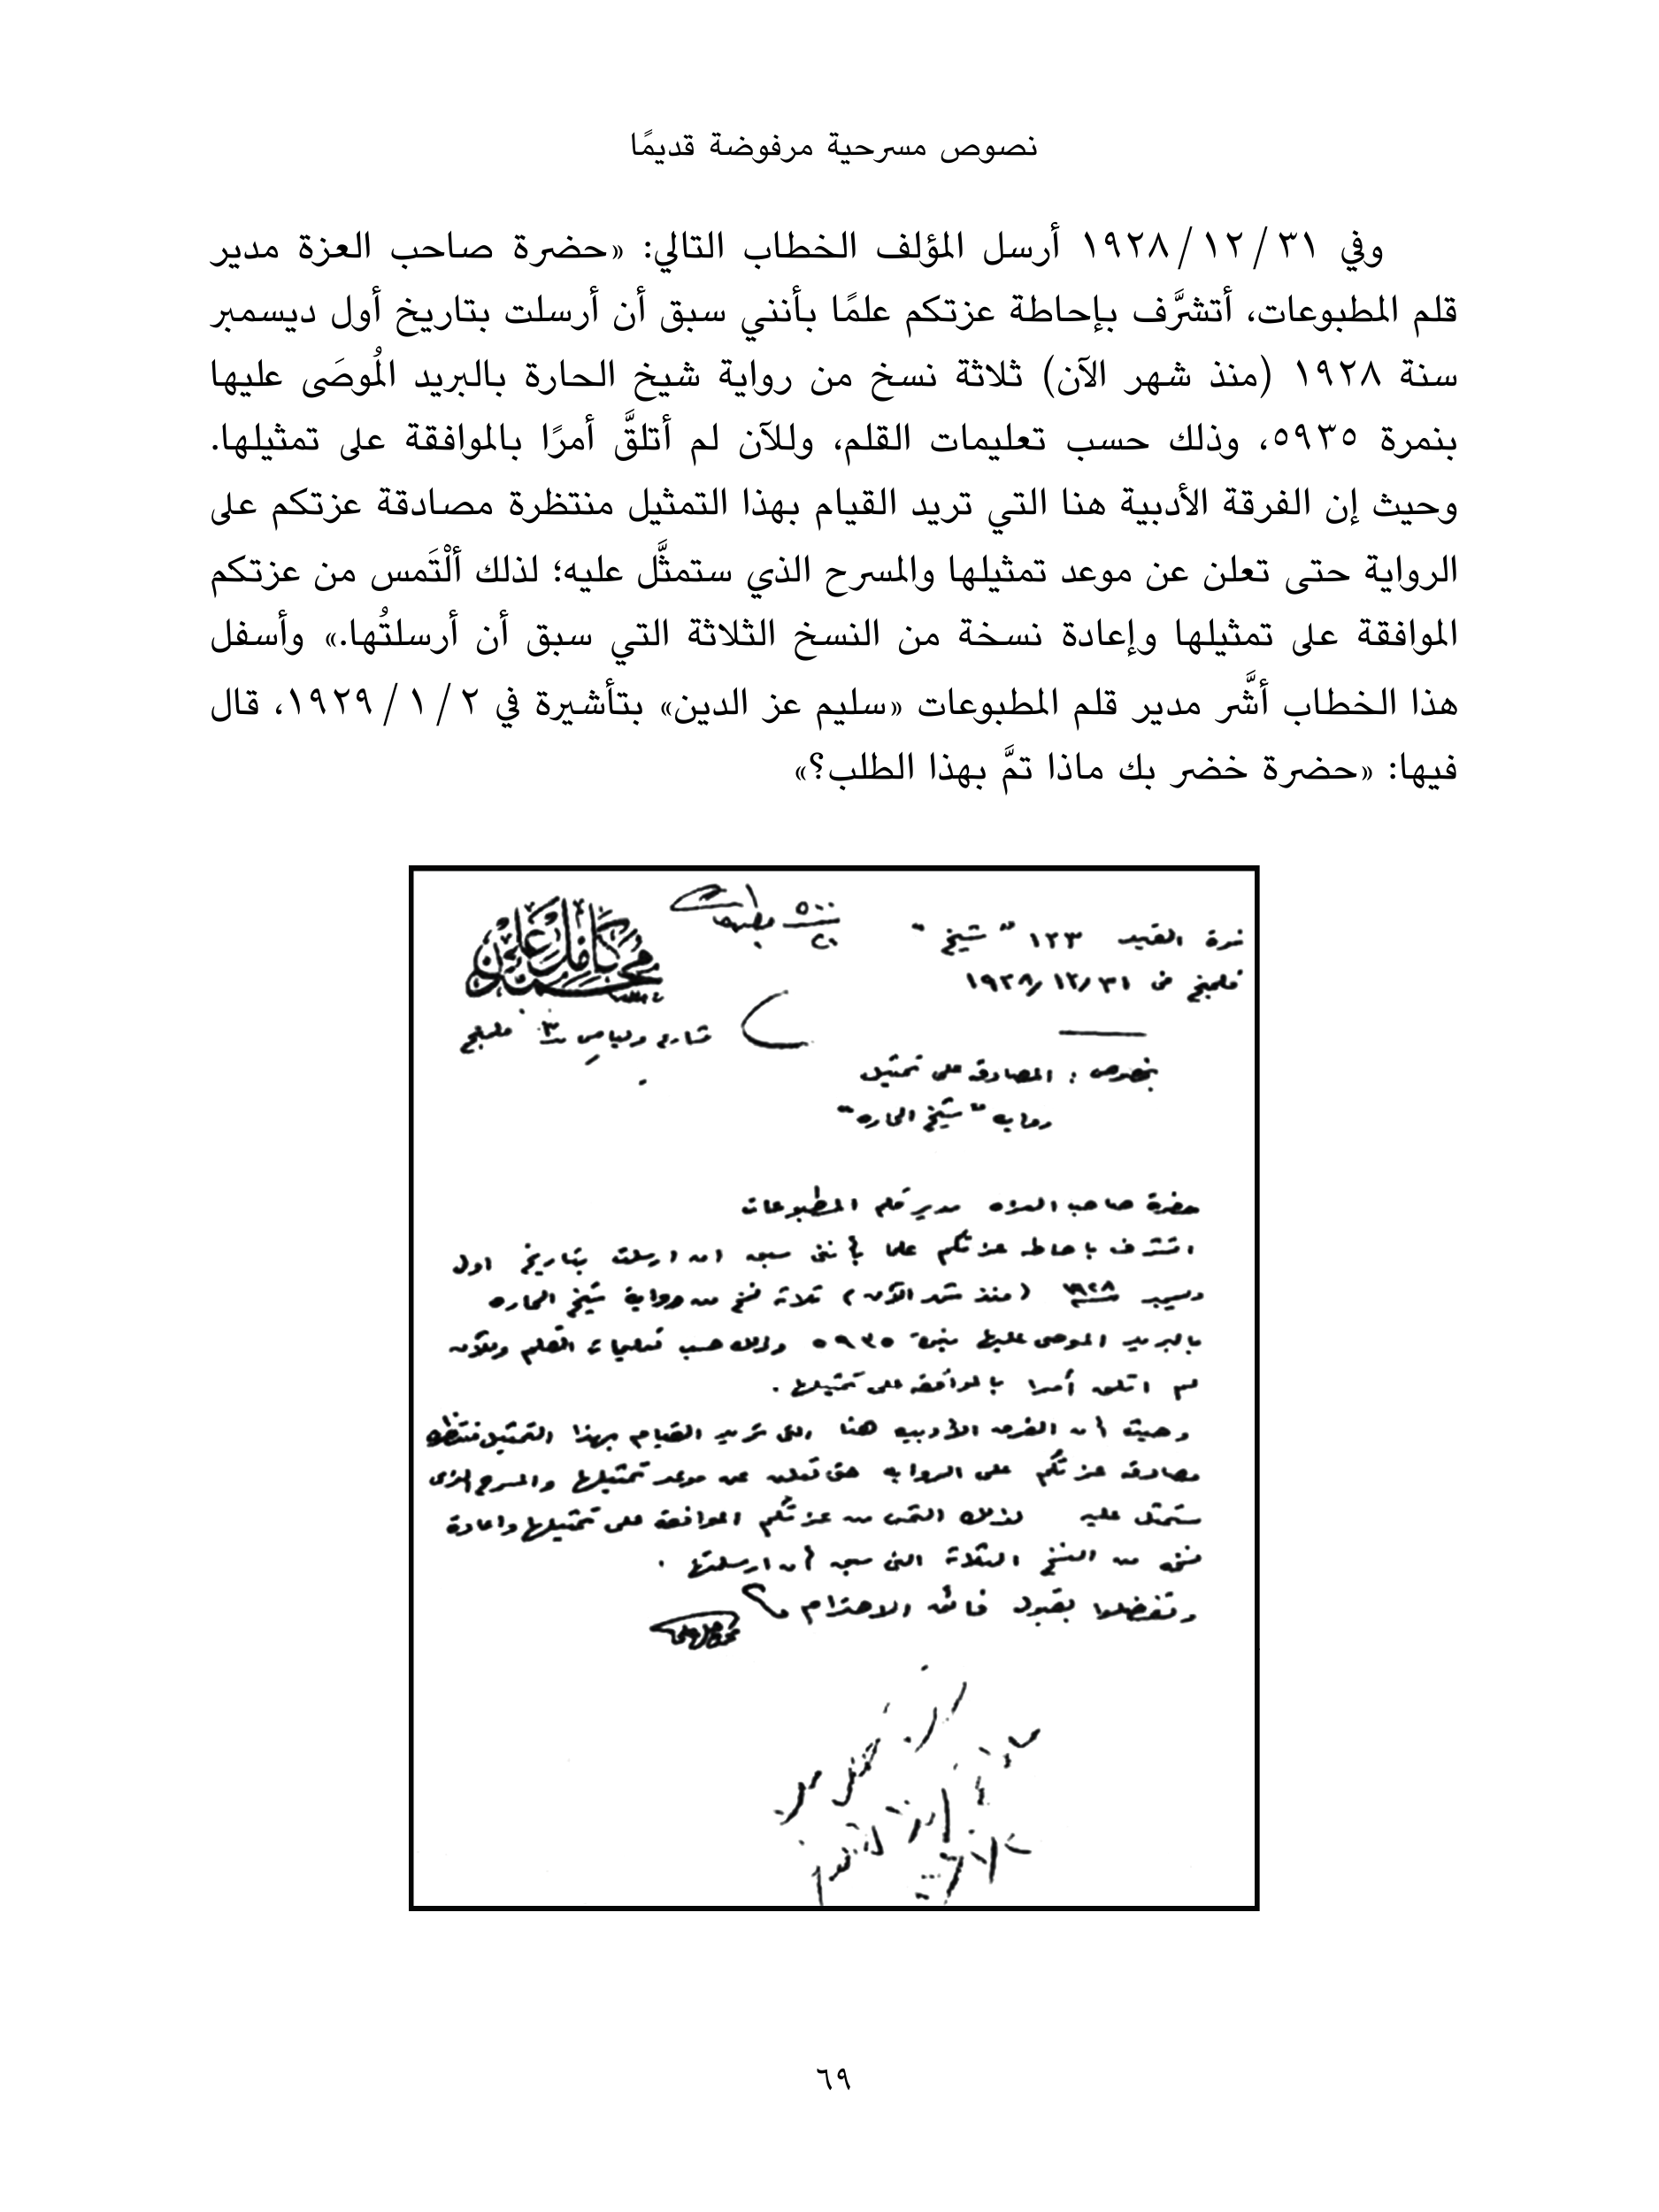 نصوص مسرحية مرفوضة قديمًا
وفي ٣١ / ١٢ / ١٩٢٨ أرسل المؤلف الخطاب التالي: «حضرة صاحب العزة مدير
قلم المطبوعات، أتشرَّف بإحاطة عزتكم علمًا بأنني سبق أن أرسلت بتاريخ أول ديسمبر
سنة ١٩٢٨ (منذ شهر الآن) ثلاثة نسخ من رواية شيخ الحارة بالبريد المُوصَى عليها
بنمرة ٥٩٣٥، وذلك حسب تعليمات القلم، وللآن لم أتلقَّ أمرًا بالموافقة على تمثيلها.
وحيث إن الفرقة الأدبية هنا التي تريد القيام بهذا التمثيل منتظرة مصادقة عزتكم على
الرواية حتى تعلن عن موعد تمثيلها والمسرح الذي ستمثَّل عليه؛ لذلك ألْتَمس من عزتكم
الموافقة على تمثيلها وإعادة نسخة من النسخ الثلاثة التي سبق أن أرسلتُها.» وأسفل
هذا الخطاب أشَّر مدير قلم المطبوعات «سليم عز الدين» بتأشيرة في ٢ / ١ / ١٩٢٩، قال
فيها: «حضرة خضر بك ماذا تمَّ بهذا الطلب؟»
نمرة القيد ١٢٣ "شيخ"
في ٣١/ ١٢/ ١٩٢٨
بخصوص : المصادقة على تمثيل
رواية "شيخ الحاره"
حضرة صاحب العزه مدير قلم المطبوعات
اتشرف باحاطة عزتكم علما بأننى سبق ان ارسلت بتاريخ اول
ديسمبر سنة ١٩٢٨ (منذ شهر الآن) ثلاثة نسخ من رواية شيخ الحاره
بالبريد الموصى عليها بنمرة ٥٩٣٥ وذلك حسب تعليمات القلم وللآن
لم اتلق أمرا بالموافقه على تمثيلها .
وحيث أن الفرقه الأدبيه هنا التى تريد القيام بهذا التمثيل منتظره
مصادقة عزتكم على الروايه حتى تعلن عن موعد تمثيلها والمسرح الذى
ستمثل عليه لذلك التمس من عزتكم الموافقة على تمثيلها واعادة
نسخه من النسخ الثلاثة التى سبق أن ارسلتها .
وتفضلوا بقبول فائق الاحترام
٦٩